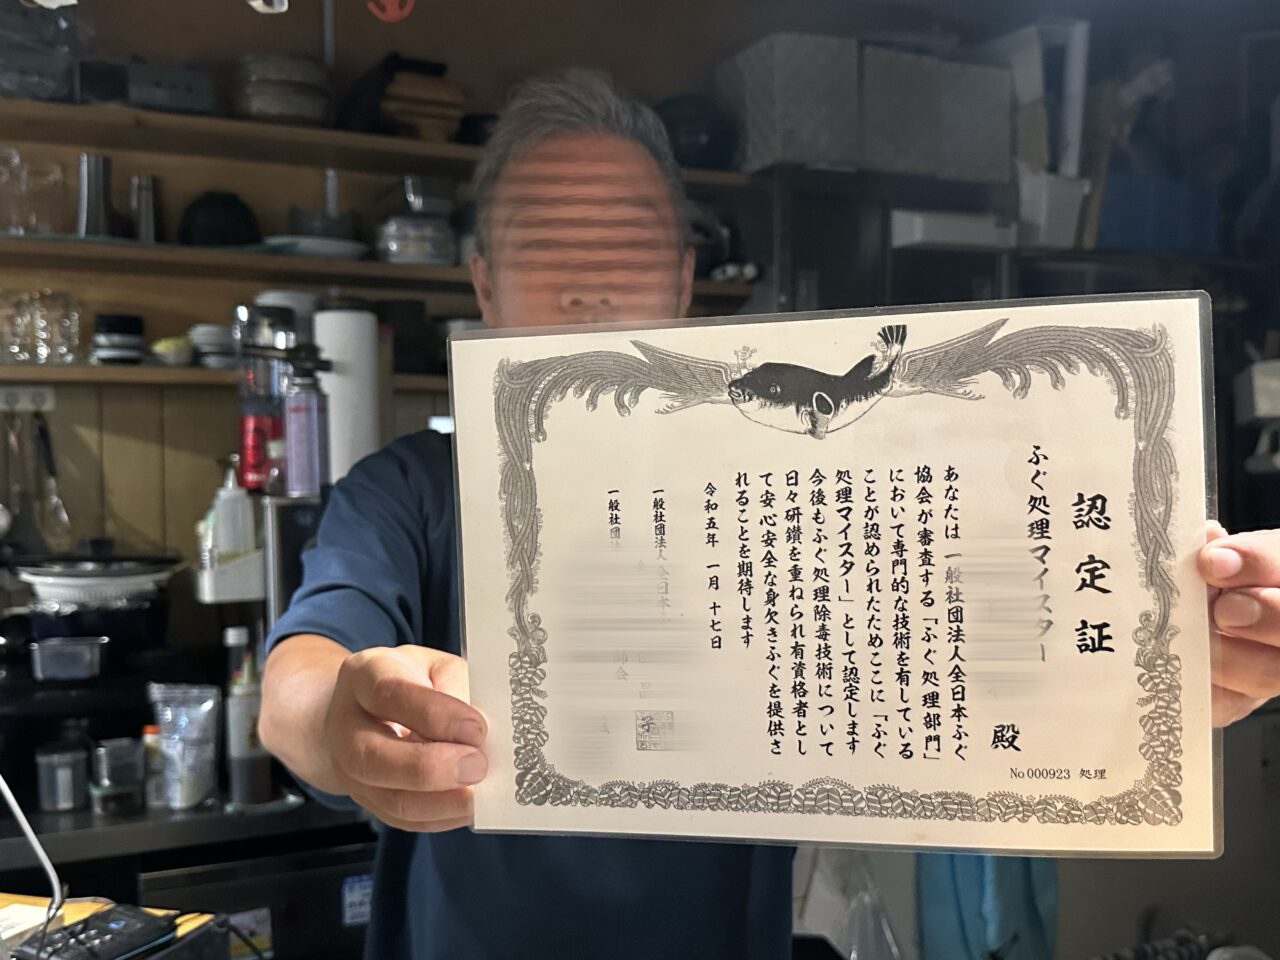 認定証
ふぐ処理マイスター
殿
あなたは 一般社団法人全日本ふぐ
協会が審査する「ふぐ処理部門」
において専門的な技術を有している
ことが認められたためここに「ふぐ
処理マイスター」として認定します
今後もふぐ処理除毒技術について
日々研鑽を重ねられ有資格者とし
て安心安全な身欠きふぐを提供さ
れることを期待します
令和五年 一月 十七日
一般社団法人 全日本
一般社団
師会
No000923 処理